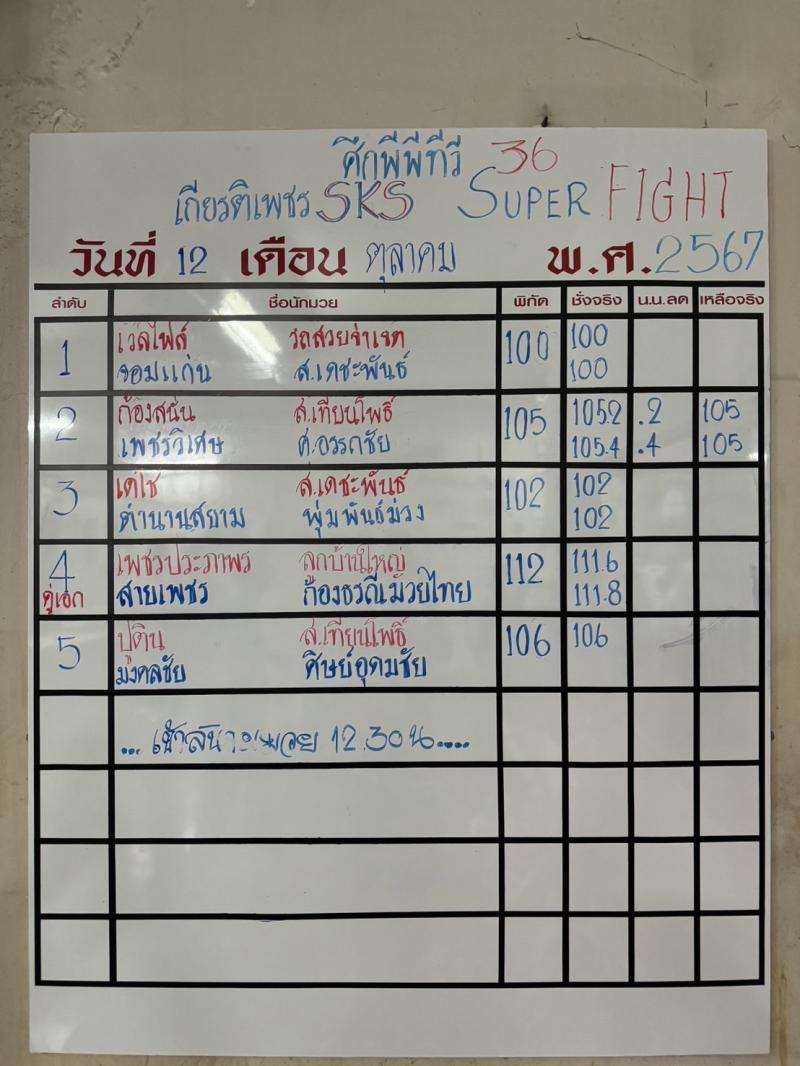 ศึกพีพีทีวี 36
เกียรติเพชร SKS SUPER FIGHT
วันที่ 12 เดือน ตุลาคม พ.ศ. 2567
ลำดับ ชื่อนักมวย พิกัด ชั่งจริง น.น.ลด เหลือจริง
1 เวิลไฟล์ รถสวยจ่าเจต 100 100
จอมแก่น ส.เดชะพันธ์ 100
2 ก้องสนั่น ส.เทียนโพธิ์ 105 105.2 .2 105
เพชรวิเศษ ศ.อรรถชัย 105.4 .4 105
3 เดโช ส.เดชะพันธ์ 102 102
ตำนานสยาม พุ่มพันธ์ม่วง 102
4 เพชรประภาพร ลูกบ้านใหญ่ 112 111.6
คู่เอก สายเพชร ก้องธรณีมวยไทย 111.8
5 ปูติน ส.เทียนโพธิ์ 106 106
มงคลชัย ศิษย์อุดมชัย
... เข้าสนามมวย 12.30 น.....